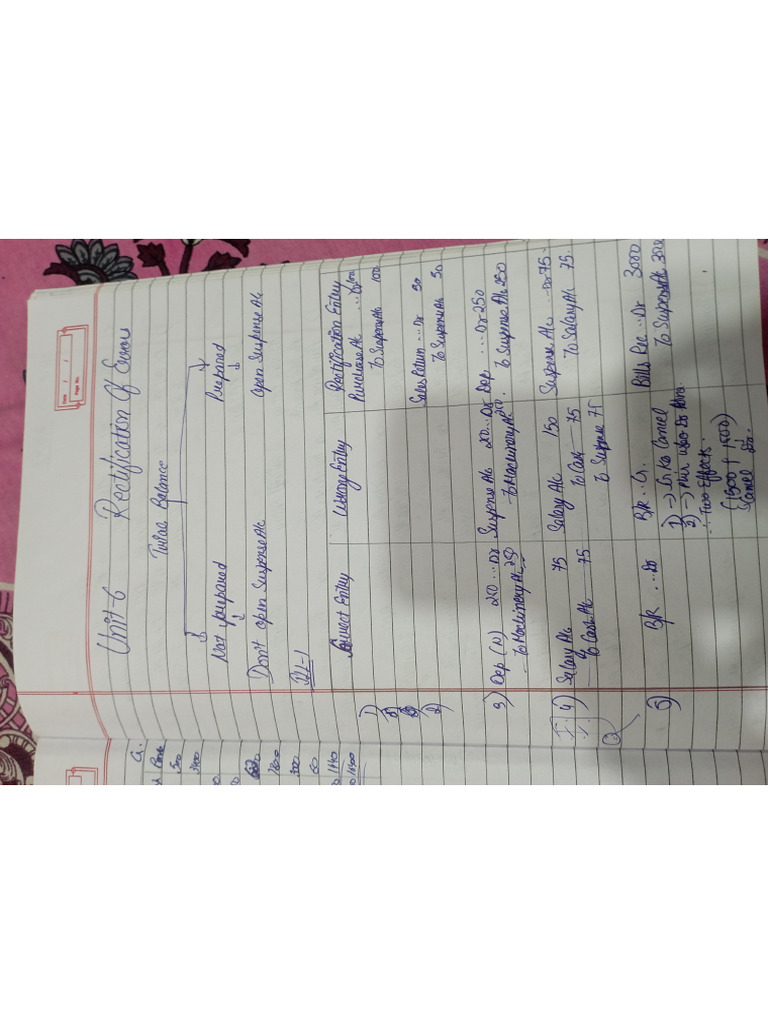 Unit-6 Rectification Of Errors
Trial Balance
Not prepared
Prepared
Don't open Suspense A/c
open Suspense A/c
Correct Entry
Wrong Entry
Rectification Entry
1)
Purchase A/c ...Dr 100
To Suspense A/c 100
2)
Sales Return ... Dr 50
To Suspense A/c 50
3) Dep (N) 250 ...Dr
To Machinery A/c 250
Suspense A/c 250 ...Dr
To Machinery A/c 250
Dep ... Dr 250
To Suspense A/c 250
4) Salary A/c 75
To Cash A/c 75
Salary A/c 150
To Cash 75
To Suspense 75
Suspense A/c ... Dr 75
To Salary A/c 75
5) B/R ... Dr
B/R .. Cr.
1) → Cr Ka Cancel
2) → Phir usko Dr
∴ Two Effect.
(1500 + 1500)
Cancel Dr.
Bills Rec ... Dr 3000
To Suspense A/c 3000
Cr.
Bank
500
7800
300
60
1440